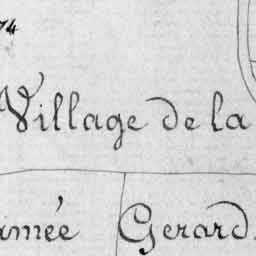 74
Village de la
amée Gerard.